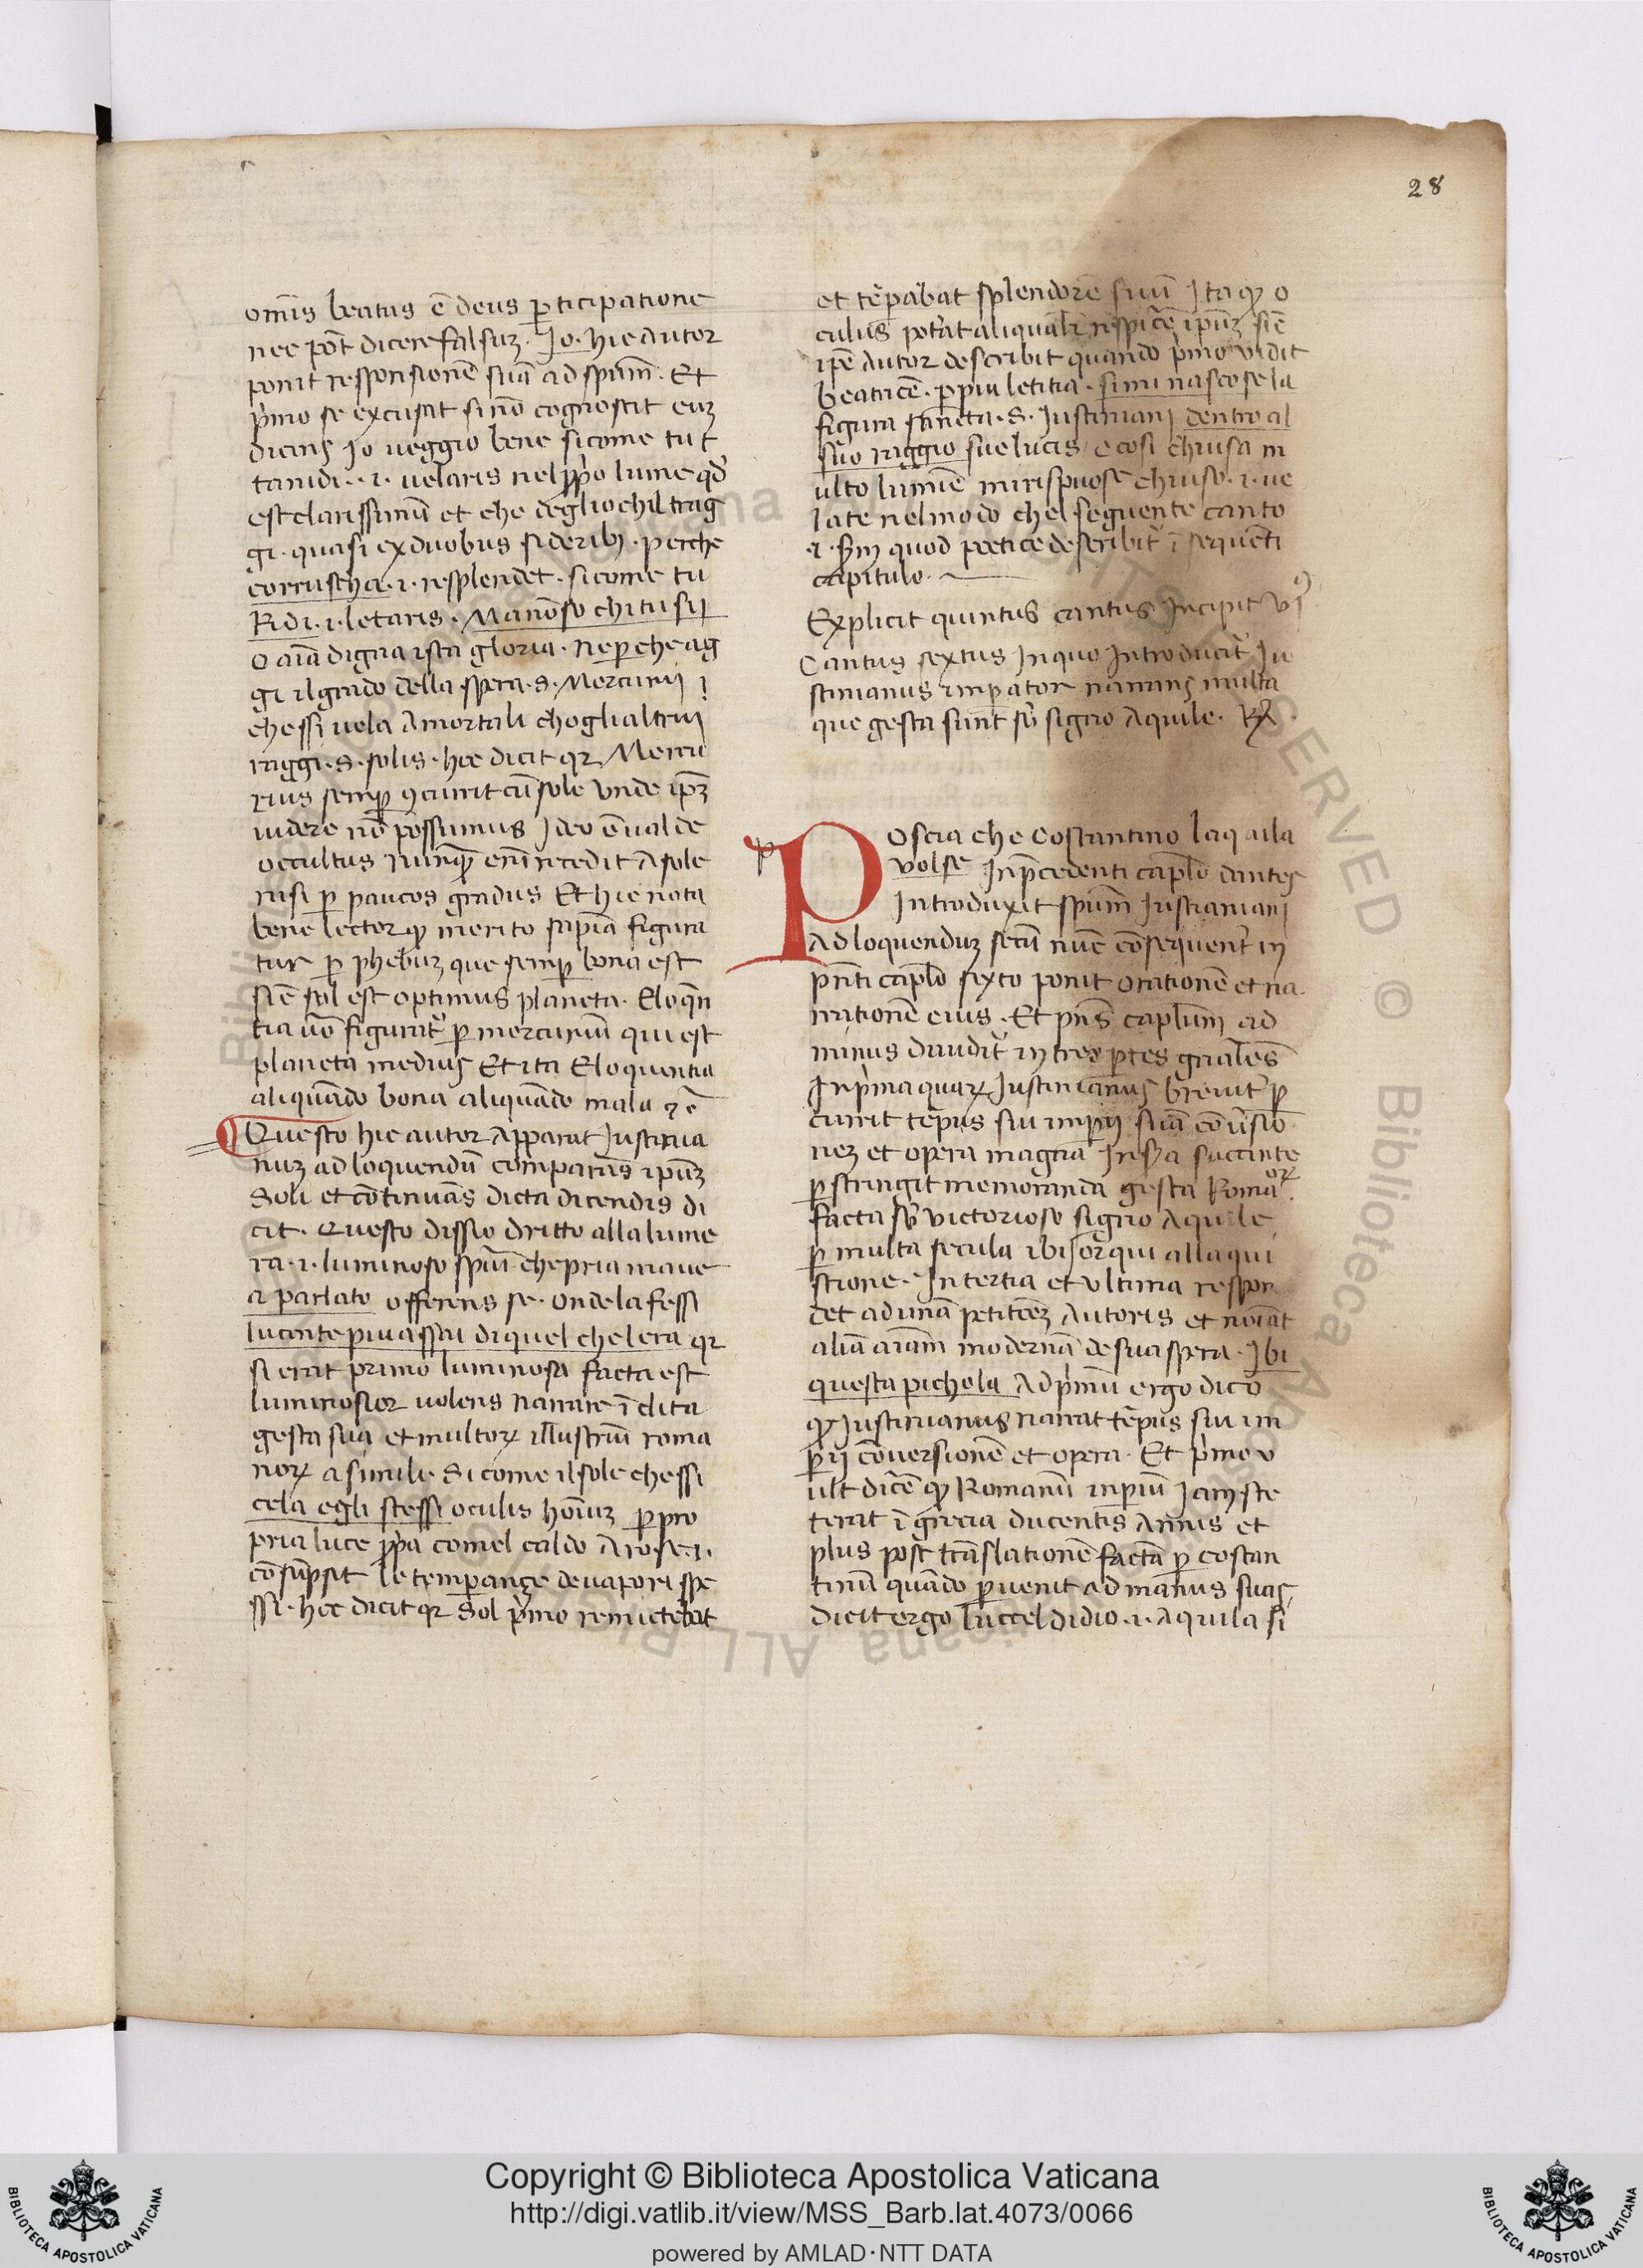 28
omīs beatus ē deus ꝑticipatione
nec pōt dicere falsuʒ. Jo. hic autor
ponit responsionē suā ad spūm. Et
p̾mo se excusat si nō cognoscit euʒ
dicens Jo veggio bene sicome tu t
tanidi. .i. velaris nel ꝓp̾o lume qd̾
est clarissimū et che degliochil trag
gi. quasi ex duobus sideribꝫ. perche
corruscha .i. resplendet. sicome tu
Ridi .i. letaris. Manōso chi tu sij
O aīa digna ista gloria. Ne ꝑche ag
gi il grado della spera .s. Mercurij
chessi vela Amortali choglialtrui
raggi .s. solis. hec dicit qꝛ Mercu
rius semꝑ ꝯcurrit cū sole vnde ipꝫ
videre nō possumus Ideo ē valde
occultus nunqꝫ eni recedit A sole
nisi ꝑ paucos gradus Et hic nota
bene lector qꝫ merito sapīa figura
tur ꝑ phebuʒ que semꝑ bona est
sic̄ sol est optimus planeta. Eloqn̄
tia v̄o figurat̾ ꝑ mercuriū qui est
planeta medius Et ita Eloquentia
aliquādo bona aliquādo mala ⁊c̄
Questo hic autor Apparat Justinia
nuʒ ad loquendū comparās ipūʒ
Soli et cōtinuās dicta dicendis di
cit. Questo dissio dritto alla lume
ra .i. luminoso spūi che pria maue
a parlato offerens se. onde la fessi
lucente piu assai di quel chelera qꝛ
si erat primo luminosa facta est
luminosior volens narrare īclita
gesta sua et multoꝝ illustriū roma
noꝝ a simili. Si come il sole chessi
cela egli stessi oculis hoīuʒ ꝑ pro
pria luce ꝓp̾a comel caldo A rose .i.
cōsūpsit le temperançe de vapori spe
ssi. hec dicit qꝛ Sol p̾mo remictebat
et tēpabat splendorē suū Ita qꝫ o
culus pot̾at aliqualr̄ respicē ipūʒ sic̄
ipē Autor describit quando p̾mo vidit
beatricē. ꝑ piu letitia. si mi nascose la
figura sancta .s. Justiniani dentro al
suo raggio sue lucis e cosi chiusa m
ulto lumie mi rispuose chiuso .i. ve
late nel modo chel seguente canto
.i. sm̄ quod poetice describit̾ ī sequēti
capitulo.
Explicit quintus cantus Incipit vjꝰ
Cantus sextus In quo Introducit̾ Ju
stinianus imꝑator narrans multa
que gesta sunt sb̄ signo Aquile. Rͣ
p
Poscia che Costantino laquila
volse In p̄cedenti capl̄o dantes
Introduxit spūm Justianiani
Ad loquenduʒ secū nūc cōsequent̾ in
pn̄ti capl̄o sexto ponit orationē et na
rrationē eius. Et pn̄s caplūm ad
minus diuidit̾ in tres ꝑtes gn̄ales
In p̾ma quaꝝ Justinianus breuit̾ ꝑ
currit tēpus sui imperij suā cōuersio
neʒ et opera magna In sᷓa succinte
ꝑstringit memoranda gesta Romaoꝝ
facta sb̄ victorioso signo Aquile
ꝑ multa secula ibi / or qui alla qui
stione. In tertia et vltima respon
det ad unā petitōeʒ Autoris et noīat
aliā aīam modernā de sua spera. Ibi
questa pichola Ad p̾mū ergo dico
qꝫ Justinianus narrat tēpus sui im
ꝑij cōuersionē et opera. Et p̾mo v
ult dicē qꝫ Romanū inperiū Jam ste
terat ī grecia ducentis Annis et
plus post trāslationē factā ꝑ costan
tinū quādo ꝑuenit ad manus suas
dicit ergo luccel didio .i. Aquila si
Copyright © Biblioteca Apostolica Vaticana
http://digi.vatlib.it/view/MSS_Barb.lat.4073/0066
powered by AMLAD·NTT DATA
BIBLIOTECA APOSTOLICA VATICANA
BIBLIOTECA APOSTOLICA VATICANA